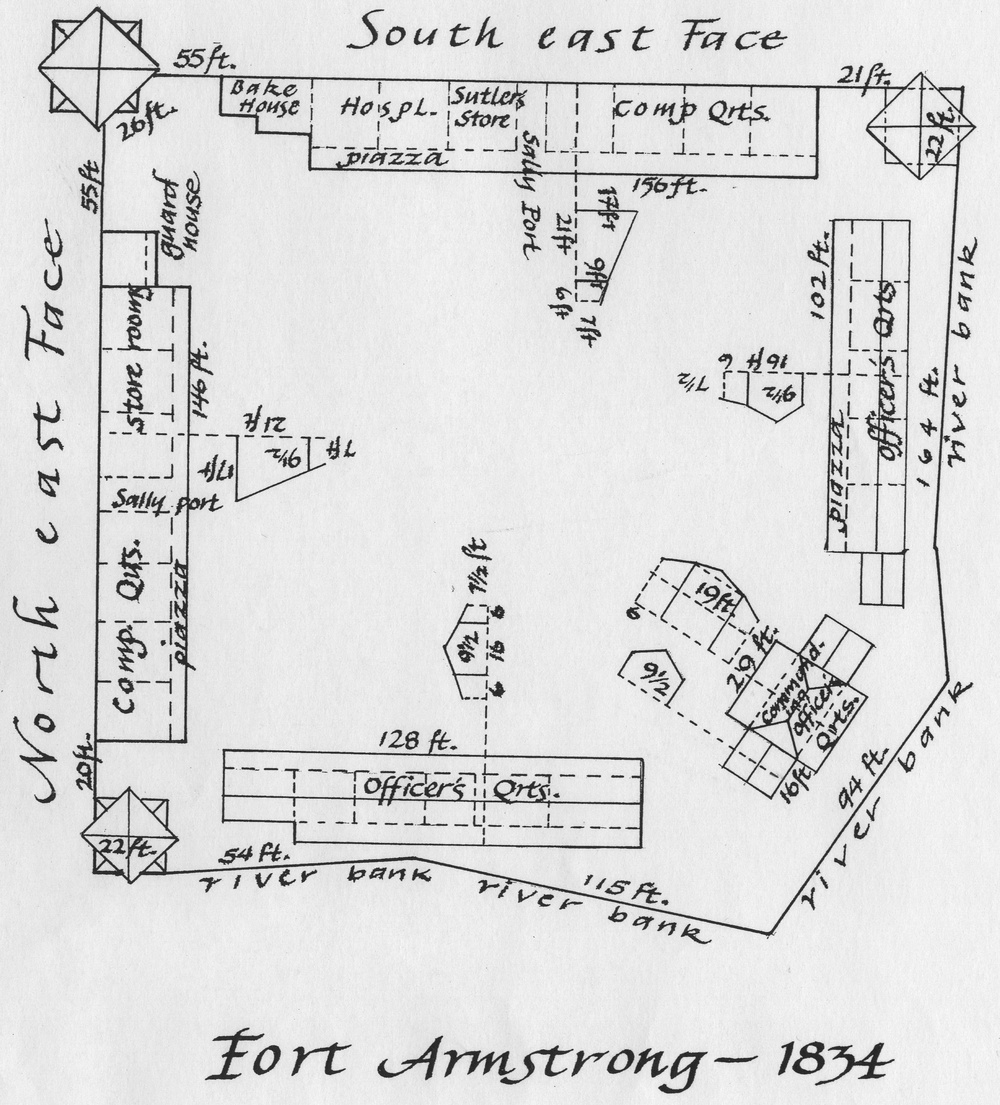 South east Face
55 ft.
21 ft.
Bake
House
Hospl.
Sutler's
Store
Comp Qrts.
26 ft.
22 ft.
piazza
Sally Port
156 ft.
55 ft
guard
house
17 ft
21 ft
9 ft
6 ft
7 ft
North east Face
store rooms
146 ft.
102 ft.
officer's Qrts
piazza
164 ft.
river bank
6
16 ft
7 1/2
9 1/2
21 ft
7 ft
17 ft
9 1/2
Sally port
Comp. Qrts.
piazza
7 1/2 ft
6
9 1/2
16
6
19 ft.
6
29 ft.
9 1/2
command-
ing
officer's
Qrts.
16 ft.
94 ft.
river bank
20 ft.
128 ft.
Officer's Qrts.
22 ft.
54 ft.
river bank
115 ft.
river bank
Fort Armstrong – 1834